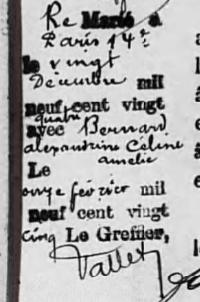 Re Marié à
Paris 14e
le vingt
Décembre mil
neuf cent vingt
quatre
avec Bernard
alexandrine Céline
amélie
Le
onze février mil
neuf cent vingt
cinq Le Greffier,
Vallet